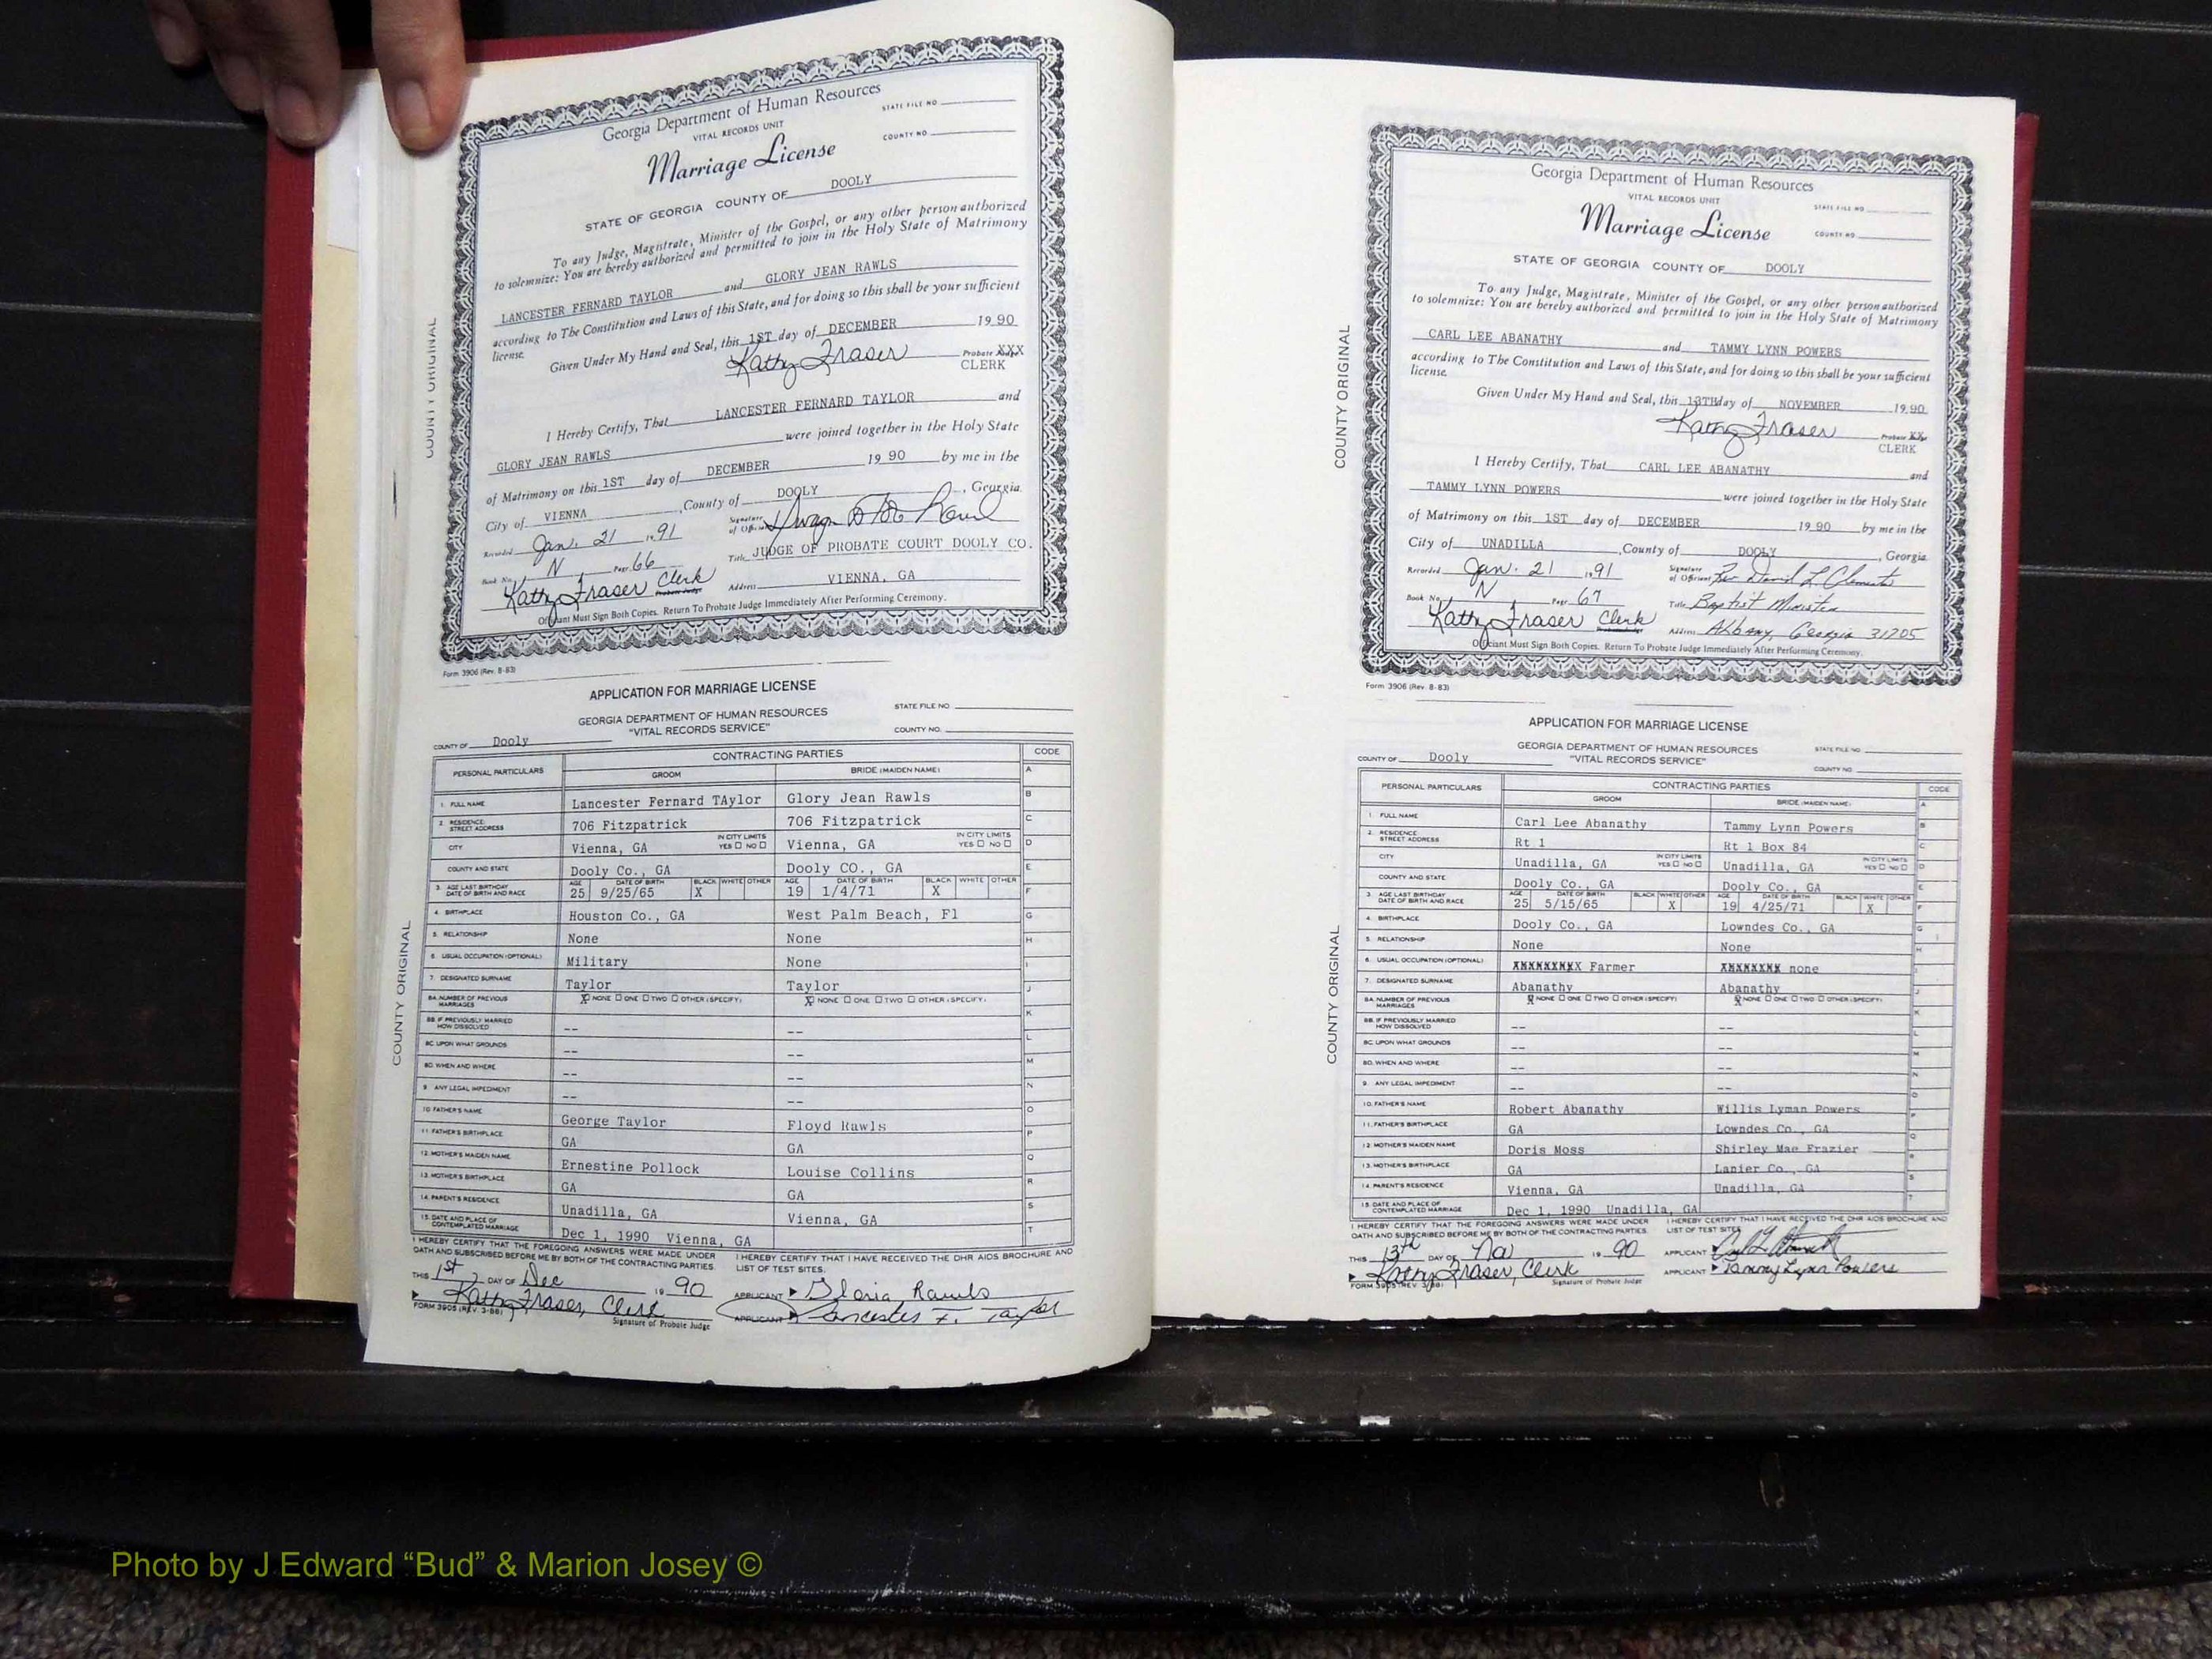 Georgia Department of Human Resources
VITAL RECORDS UNIT
STATE FILE NO
Marriage License
COUNTY NO
STATE OF GEORGIA COUNTY OF DOOLY
To any Judge, Magistrate, Minister of the Gospel, or any other person authorized
to solemnize: You are hereby authorized and permitted to join in the Holy State of Matrimony
LANCESTER FERNARD TAYLOR and GLORY JEAN RAWLS
according to The Constitution and Laws of this State, and for doing so this shall be your sufficient
license.
Given Under My Hand and Seal, this 1ST day of DECEMBER 19 90
Kathy Fraser Probate Judge XXX
CLERK
I Hereby Certify, That LANCESTER FERNARD TAYLOR and
GLORY JEAN RAWLS were joined together in the Holy State
of Matrimony on this 1ST day of DECEMBER 19 90 by me in the
City of VIENNA, County of DOOLY, Georgia.
Recorded Jan. 21 1991 Signature of Officiant
Book No. N Page 66 Title JUDGE OF PROBATE COURT DOOLY CO.
Kathy Fraser Clerk Address VIENNA, GA
Officiant Must Sign Both Copies. Return To Probate Judge Immediately After Performing Ceremony.
Form 3906 (Rev. 8-83)
COUNTY ORIGINAL
APPLICATION FOR MARRIAGE LICENSE
GEORGIA DEPARTMENT OF HUMAN RESOURCES
"VITAL RECORDS SERVICE"
STATE FILE NO.
COUNTY NO.
COUNTY OF Dooly
PERSONAL PARTICULARS CONTRACTING PARTIES CODE
GROOM BRIDE (MAIDEN NAME) A
1. FULL NAME Lancester Fernard TAylor Glory Jean Rawls B
2. RESIDENCE: STREET ADDRESS 706 Fitzpatrick 706 Fitzpatrick C
CITY Vienna, GA IN CITY LIMITS YES ☐ NO ☐ Vienna, GA IN CITY LIMITS YES ☐ NO ☐ D
COUNTY AND STATE Dooly Co., GA Dooly CO., GA E
3. AGE LAST BIRTHDAY DATE OF BIRTH AND RACE AGE 25 DATE OF BIRTH 9/25/65 BLACK X WHITE OTHER AGE 19 DATE OF BIRTH 1/4/71 BLACK X WHITE OTHER F
4. BIRTHPLACE Houston Co., GA West Palm Beach, Fl G
5. RELATIONSHIP None None H
6. USUAL OCCUPATION (OPTIONAL) Military None I
7. DESIGNATED SURNAME Taylor Taylor J
8A. NUMBER OF PREVIOUS MARRIAGES X NONE ☐ ONE ☐ TWO ☐ OTHER (SPECIFY) X NONE ☐ ONE ☐ TWO ☐ OTHER (SPECIFY) K
8B. IF PREVIOUSLY MARRIED HOW DISSOLVED -- -- L
8C. UPON WHAT GROUNDS -- -- M
8D. WHEN AND WHERE -- -- N
9. ANY LEGAL IMPEDIMENT -- -- O
10. FATHER'S NAME George Taylor Floyd Rawls P
11. FATHER'S BIRTHPLACE GA GA
12. MOTHER'S MAIDEN NAME Ernestine Pollock Louise Collins Q
13. MOTHER'S BIRTHPLACE GA GA R
14. PARENT'S RESIDENCE Unadilla, GA Vienna, GA S
15. DATE AND PLACE OF CONTEMPLATED MARRIAGE Dec 1, 1990 Vienna, GA T
I HEREBY CERTIFY THAT THE FOREGOING ANSWERS WERE MADE UNDER
OATH AND SUBSCRIBED BEFORE ME BY BOTH OF THE CONTRACTING PARTIES.
THIS 1st DAY OF Dec 19 90
Kathy Fraser, Clerk
FORM 3905 (REV. 3-88) Signature of Probate Judge
I HEREBY CERTIFY THAT I HAVE RECEIVED THE DHR AIDS BROCHURE AND
LIST OF TEST SITES.
APPLICANT Gloria Rawls
APPLICANT Lancester F. Taylor
COUNTY ORIGINAL
Georgia Department of Human Resources
VITAL RECORDS UNIT
STATE FILE NO
Marriage License
COUNTY NO
STATE OF GEORGIA COUNTY OF DOOLY
To any Judge, Magistrate, Minister of the Gospel, or any other person authorized
to solemnize: You are hereby authorized and permitted to join in the Holy State of Matrimony
CARL LEE ABANATHY and TAMMY LYNN POWERS
according to The Constitution and Laws of this State, and for doing so this shall be your sufficient
license.
Given Under My Hand and Seal, this 13TH day of NOVEMBER 19 90
Kathy Fraser Probate Judge XX
CLERK
I Hereby Certify, That CARL LEE ABANATHY and
TAMMY LYNN POWERS were joined together in the Holy State
of Matrimony on this 1ST day of DECEMBER 19 90 by me in the
City of UNADILLA, County of DOOLY, Georgia
Recorded Jan. 21 1991 Signature of Officiant Rev David L. Clements
Book No. N Page 67 Title Baptist Minister
Kathy Fraser Clerk Address Albany, Georgia 31705
Officiant Must Sign Both Copies. Return To Probate Judge Immediately After Performing Ceremony.
Form 3906 (Rev. 8-83)
COUNTY ORIGINAL
APPLICATION FOR MARRIAGE LICENSE
GEORGIA DEPARTMENT OF HUMAN RESOURCES
"VITAL RECORDS SERVICE"
STATE FILE NO
COUNTY NO
COUNTY OF Dooly
PERSONAL PARTICULARS CONTRACTING PARTIES CODE
GROOM BRIDE (MAIDEN NAME) A
1. FULL NAME Carl Lee Abanathy Tammy Lynn Powers B
2. RESIDENCE STREET ADDRESS Rt 1 Rt 1 Box 84 C
CITY Unadilla, GA IN CITY LIMITS YES ☐ NO ☐ Unadilla, GA IN CITY LIMITS YES ☐ NO ☐ D
COUNTY AND STATE Dooly Co., GA Dooly Co., GA E
3. AGE LAST BIRTHDAY DATE OF BIRTH AND RACE AGE 25 DATE OF BIRTH 5/15/65 BLACK WHITE X OTHER AGE 19 DATE OF BIRTH 4/25/71 BLACK WHITE X OTHER F
4. BIRTHPLACE Dooly Co., GA Lowndes Co., GA G
5. RELATIONSHIP None None H
6. USUAL OCCUPATION (OPTIONAL) XXXXXXXXX Farmer XXXXXXXX none I
7. DESIGNATED SURNAME Abanathy Abanathy J
8A. NUMBER OF PREVIOUS MARRIAGES X NONE ☐ ONE ☐ TWO ☐ OTHER (SPECIFY) X NONE ☐ ONE ☐ TWO ☐ OTHER (SPECIFY) K
8B. IF PREVIOUSLY MARRIED HOW DISSOLVED -- -- L
8C. UPON WHAT GROUNDS -- -- M
8D. WHEN AND WHERE -- -- N
9. ANY LEGAL IMPEDIMENT -- -- O
10. FATHER'S NAME Robert Abanathy Willis Lyman Powers P
11. FATHER'S BIRTHPLACE GA Lowndes Co., GA Q
12. MOTHER'S MAIDEN NAME Doris Moss Shirley Mae Frazier R
13. MOTHER'S BIRTHPLACE GA Lanier Co., GA S
14. PARENT'S RESIDENCE Vienna, GA Unadilla, GA T
15. DATE AND PLACE OF CONTEMPLATED MARRIAGE Dec 1, 1990 Unadilla, GA
I HEREBY CERTIFY THAT THE FOREGOING ANSWERS WERE MADE UNDER
OATH AND SUBSCRIBED BEFORE ME BY BOTH OF THE CONTRACTING PARTIES.
THIS 13th DAY OF Nov 19 90
Kathy Fraser, Clerk
FORM 3905 (REV. 3/88) Signature of Probate Judge
I HEREBY CERTIFY THAT I HAVE RECEIVED THE DHR AIDS BROCHURE AND
LIST OF TEST SITES
APPLICANT
APPLICANT Tammy Lynn Powers
COUNTY ORIGINAL
Photo by J Edward “Bud” & Marion Josey ©